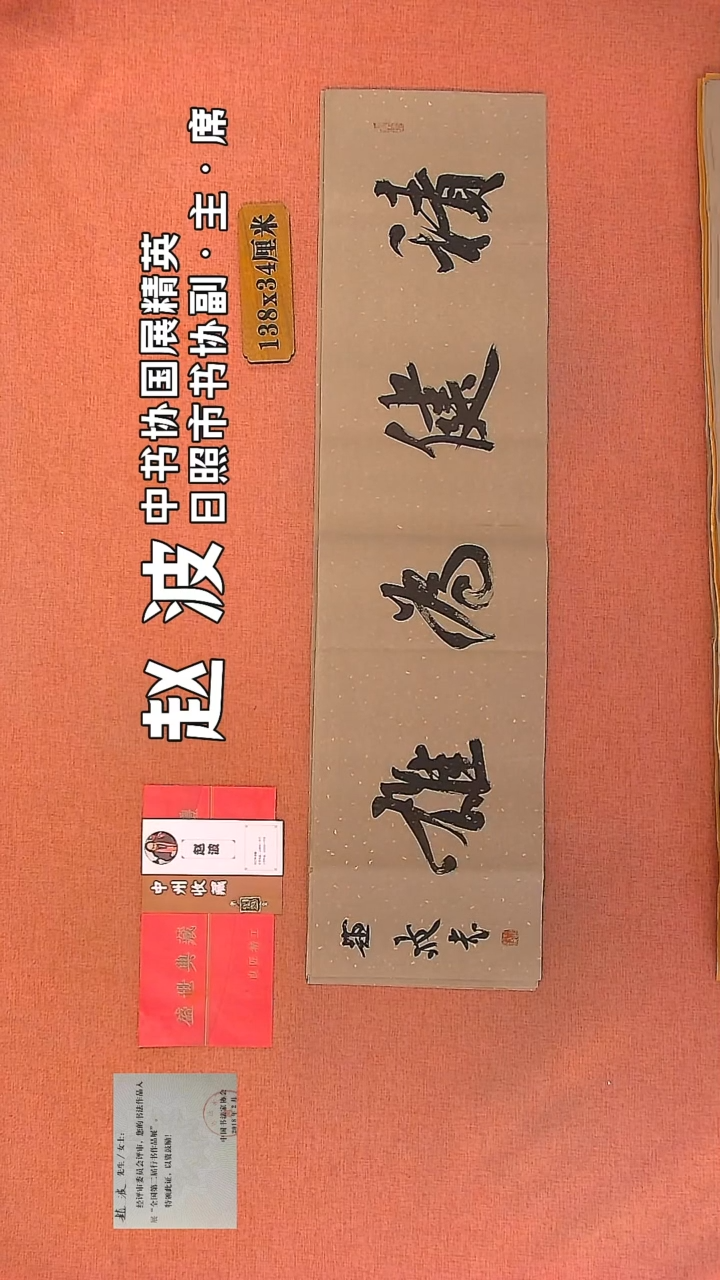 赵波
中书协国展精英
日照市书协副·主·席
138x34厘米
積健為雄
赵波
中州收藏
盛世典藏
赵波 先生/女士:
经评审委员会评审,您的书法作品入
展“全国第二届行书作品展”。
特颁此证,以资鼓励!
中国书法家协会
2018年2月